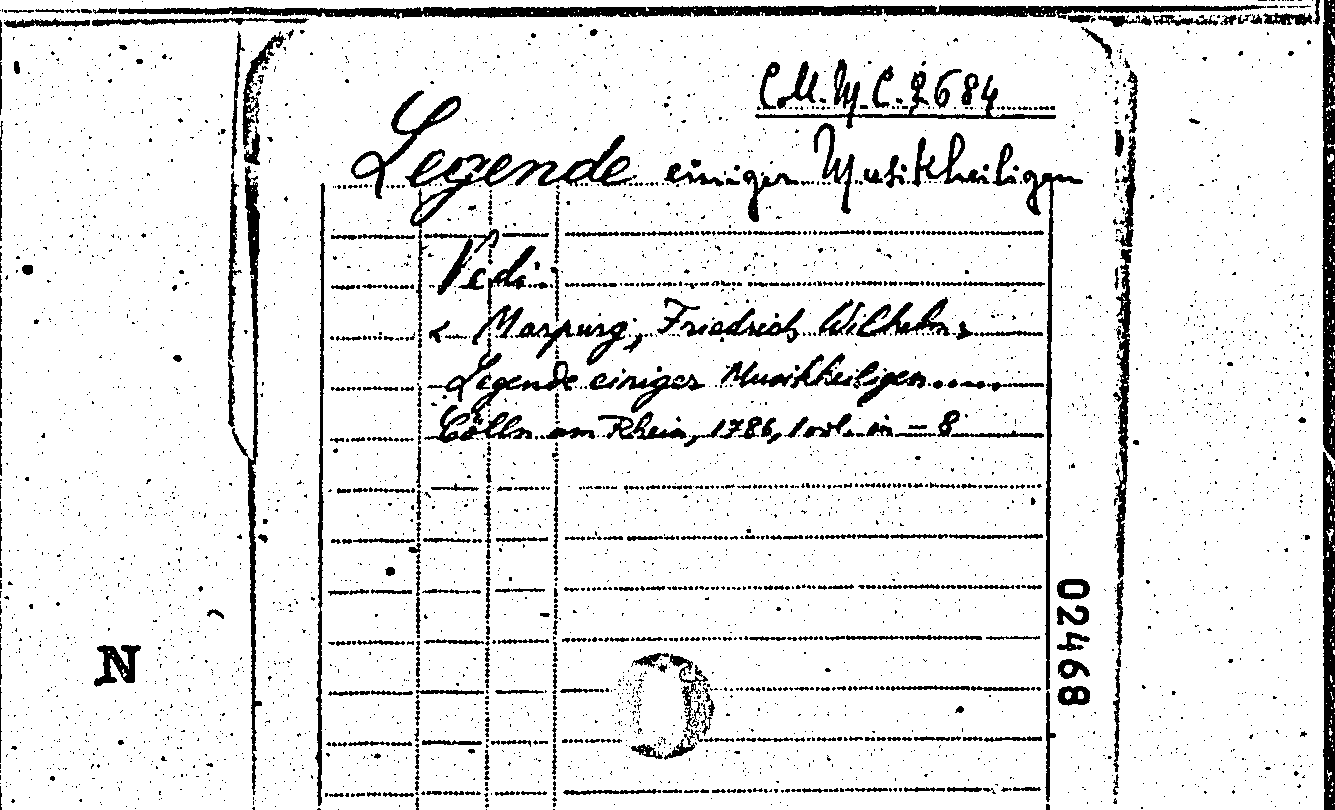 Coll. M. C. 2684
Legende einiger Musikheiligen
Vedi:
< Marpurg, Friedrich Wilhelm >
Legende einiger Musikheiligen.....
Cölln am Rhein, 1786, 1 vol. in - 8
02468
N